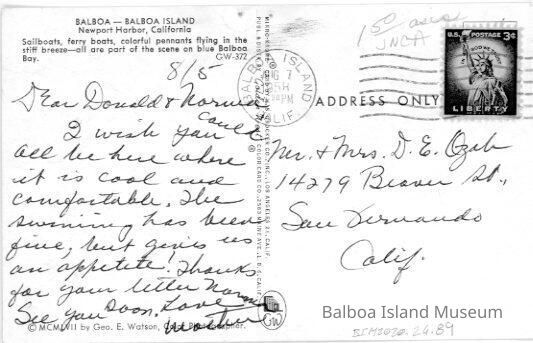 BALBOA — BALBOA ISLAND
Newport Harbor, California
Sailboats, ferry boats, colorful pennants flying in the
stiff breeze—all are part of the scene on blue Balboa
Bay.
GW-372
8/5
Dear Donald & Norma
I wish you could
all be here where
it is cool and
comfortable. The
swimming has been
fine, but gives us
an appetite! Thanks
for your letter Norma
See you soon. Love
Mother
© MCMLVII by Geo. E. Watson, Color Photographer.
GW
BALBOA ISLAND
AUG 7
PM
CALIF.
U.S. POSTAGE 3¢
IN GOD WE TRUST
LIBERTY
ADDRESS ONLY
Mr. & Mrs. D. E. Ozab
14279 Beaver St.,
San Fernando
Calif.
Balboa Island Museum